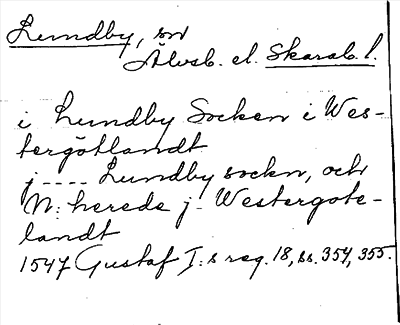 Lundby, sn
Älvsb. el. Skarab. l.
i Lundby Socken i Wes-
tergötlandt
j---- Lundby sockn, och
N: herede j - Westergote-
landt
1547 Gustaf I:s reg. 18, ss. 354, 355.